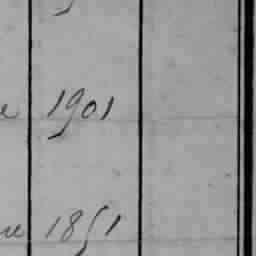 e 1901
re 1851